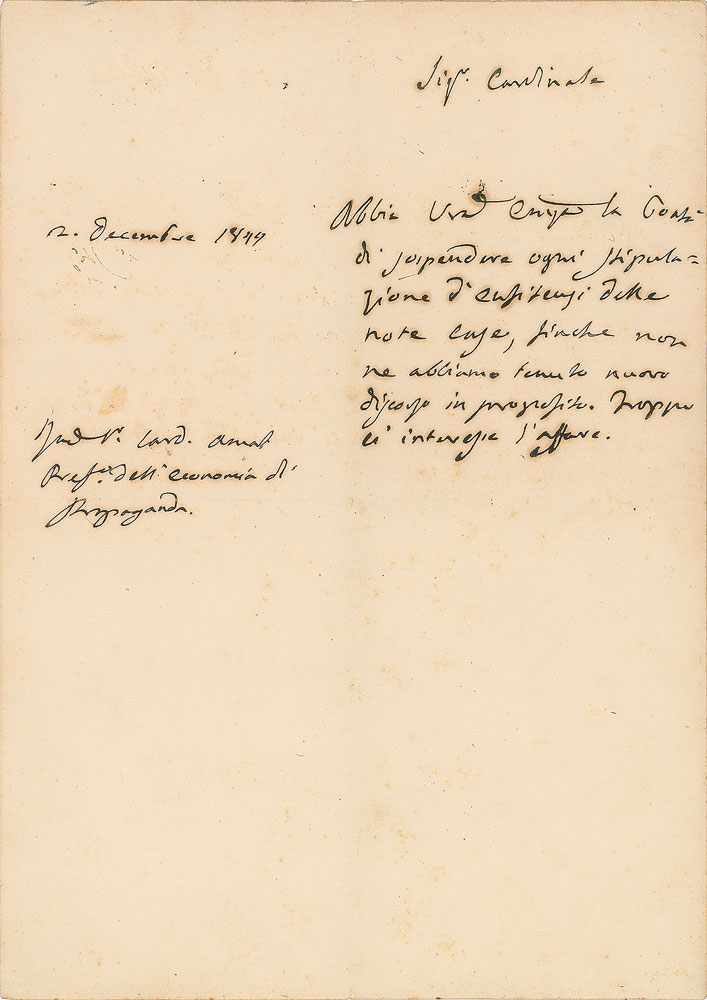 Sig.r Cardinale
Abbia Vra Emza la bontà
di sospendere ogni stipula=
zione d'enfiteusi delle
note case, finche non
ne abbiamo tenuto nuovo
discorso in proposito. Troppo
ci interessa l'affare.
2. Decembre 1844
Sr. Card. Amat
Pref. dell'economia di
Propaganda.